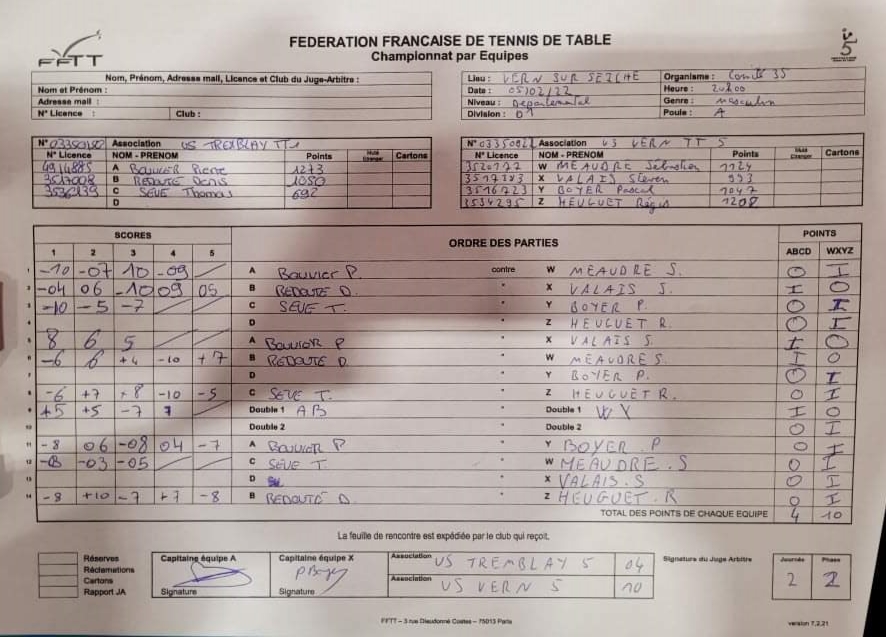 FEDERATION FRANCAISE DE TENNIS DE TABLE
Championnat par Equipes
FFTT
Nom, Prénom, Adresse mail, Licence et Club du Juge-Arbitre :
Nom et Prénom :
Adresse mail :
N° Licence : Club :
Lieu : VERN SUR SEICHE Organisme : Comité 35
Date : 05/02/22 Heure : 20h00
Niveau : Départemental Genre : masculin
Division : D1 Poule : A
Association US TREMBLAY TT
N° Licence NOM - PRENOM Points Muté Etranger Cartons
A BOUVIER Pierre 1273
B REDOUTE Denis 1050
C SEVE Thomas 692
D
Association US VERN TT 5
N° Licence NOM - PRENOM Points Muté Etranger Cartons
W MEAUDRE Sébastien 1124
X VALAIS Steven 993
3516723 Y BOYER Pascal 1047
3534295 Z HEUGUET Régis 1208
SCORES ORDRE DES PARTIES POINTS
1 2 3 4 5 ABCD WXYZ
1 -10 -07 10 -09 A Bouvier P. contre W MEAUDRE S. 0 I
2 -04 06 -10 09 05 B REDOUTE D. " X VALAIS S. I 0
3 -10 -5 -7 C SEVE T. " Y BOYER P. 0 I
4 D " Z HEUGUET R. 0 I
5 8 6 5 A BOUVIER P " X VALAIS S 1 0
6 -6 6 +4 -10 +7 B REDOUTE D. " W MEAUDRE S. I 0
7 D " Y BOYER P. 0 I
8 -6 +7 +8 -10 -5 C SEVE T. " Z HEUGUET R. 0 I
9 +5 +5 -7 7 Double 1 AB " Double 1 WY I 0
10 Double 2 " Double 2 0 I
11 -8 06 -08 04 -7 A BOUVIER P " Y BOYER . P 0 I
12 -03 -05 C SEVE T. " W MEAUDRE . S 0 I
13 D " X VALAIS . S 0 I
14 -8 +10 -7 +7 -8 B REDOUTÉ D. " Z HEUGUET . R 0 I
TOTAL DES POINTS DE CHAQUE EQUIPE 4 10
La feuille de rencontre est expédiée par le club qui reçoit.
Réserves
Réclamations
Cartons
Rapport JA
Capitaine équipe A
Signature
Capitaine équipe X
Signature
Association US TREMBLAY 5 04
Association US VERN 5 10
Signature du Juge Arbitre
Journée Phase
2 2
FFTT – 3 rue Dieudonné Costes – 75013 Paris
version 7.2.21